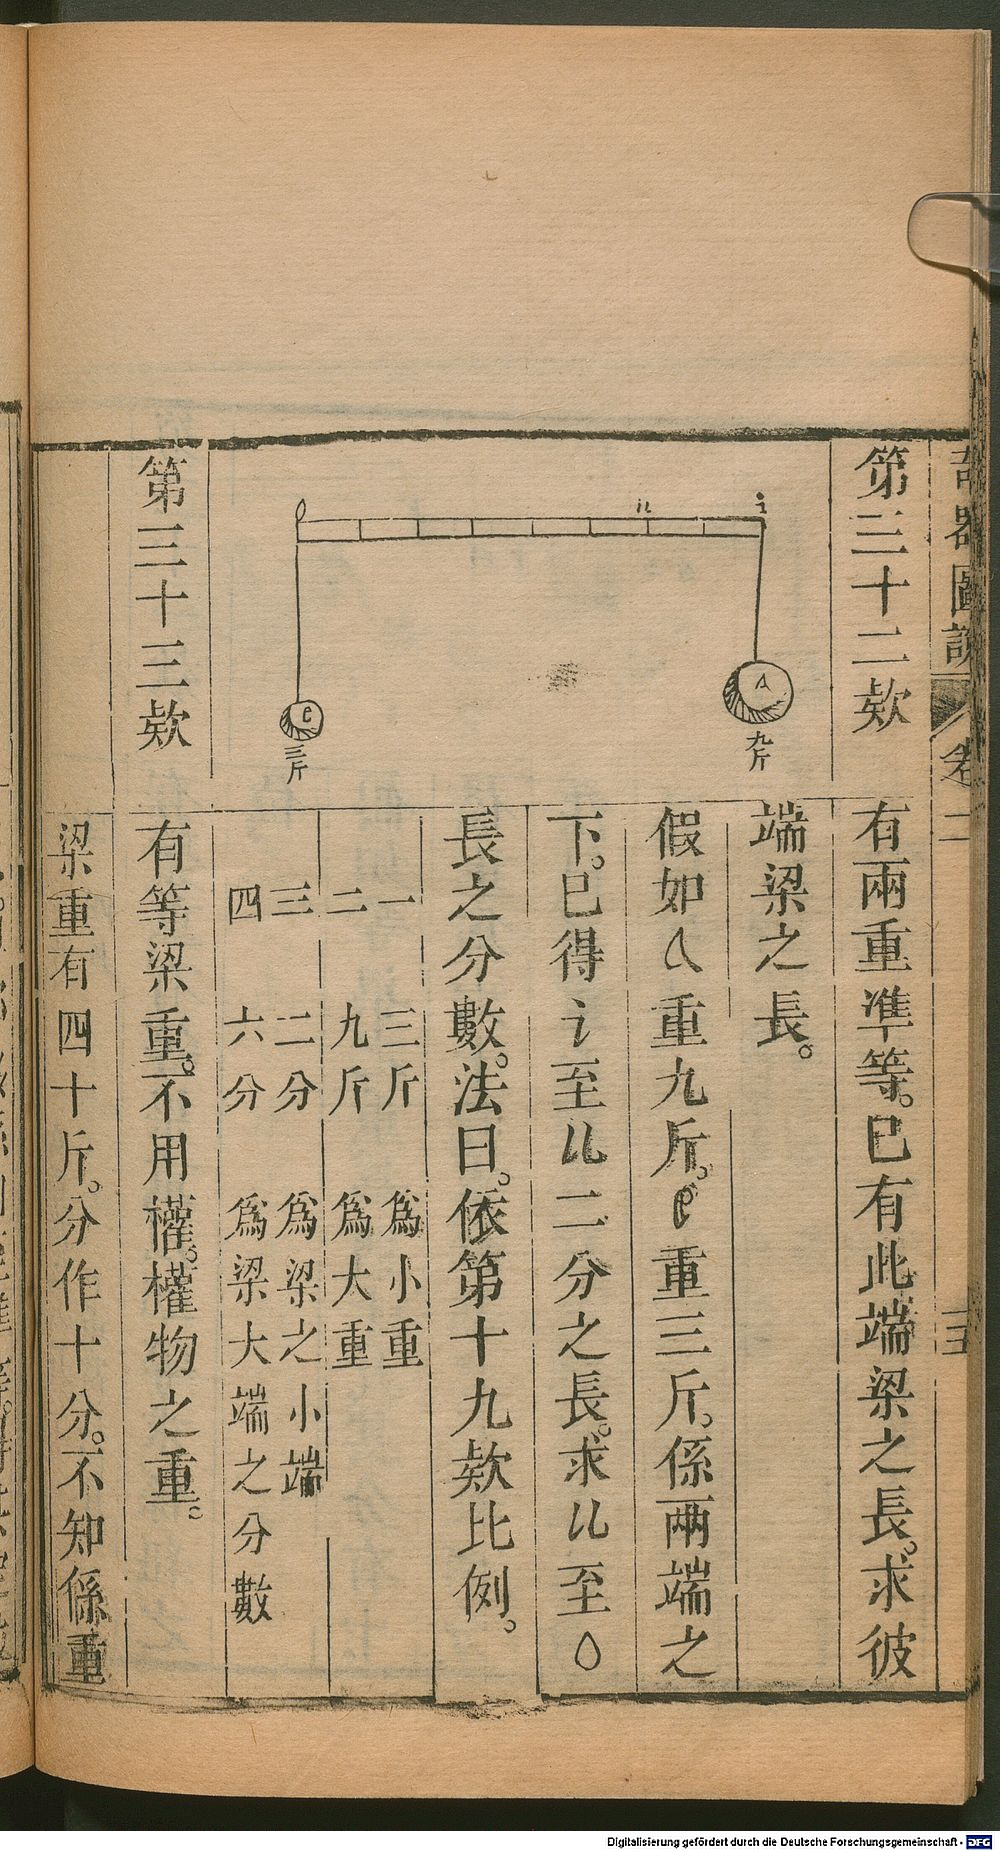 奇器圖說 卷二
第三十二欵
有兩重準等。已有此端梁之長。求彼
端梁之長。
假如A重九斤。e重三斤。係兩端之
下。已得i至u二分之長。求u至o
長之分數。法曰。依第十九欵比例。
一 三斤 爲小重
二 九斤 爲大重
三 二分 爲梁之小端
四 六分 爲梁大端之分數
o u i
e A
三斤
九斤
第三十三欵
有等梁重。不用權。權物之重。
梁重有四十斤。分作十分。不知係重
Digitalisierung gefördert durch die Deutsche Forschungsgemeinschaft - DFG